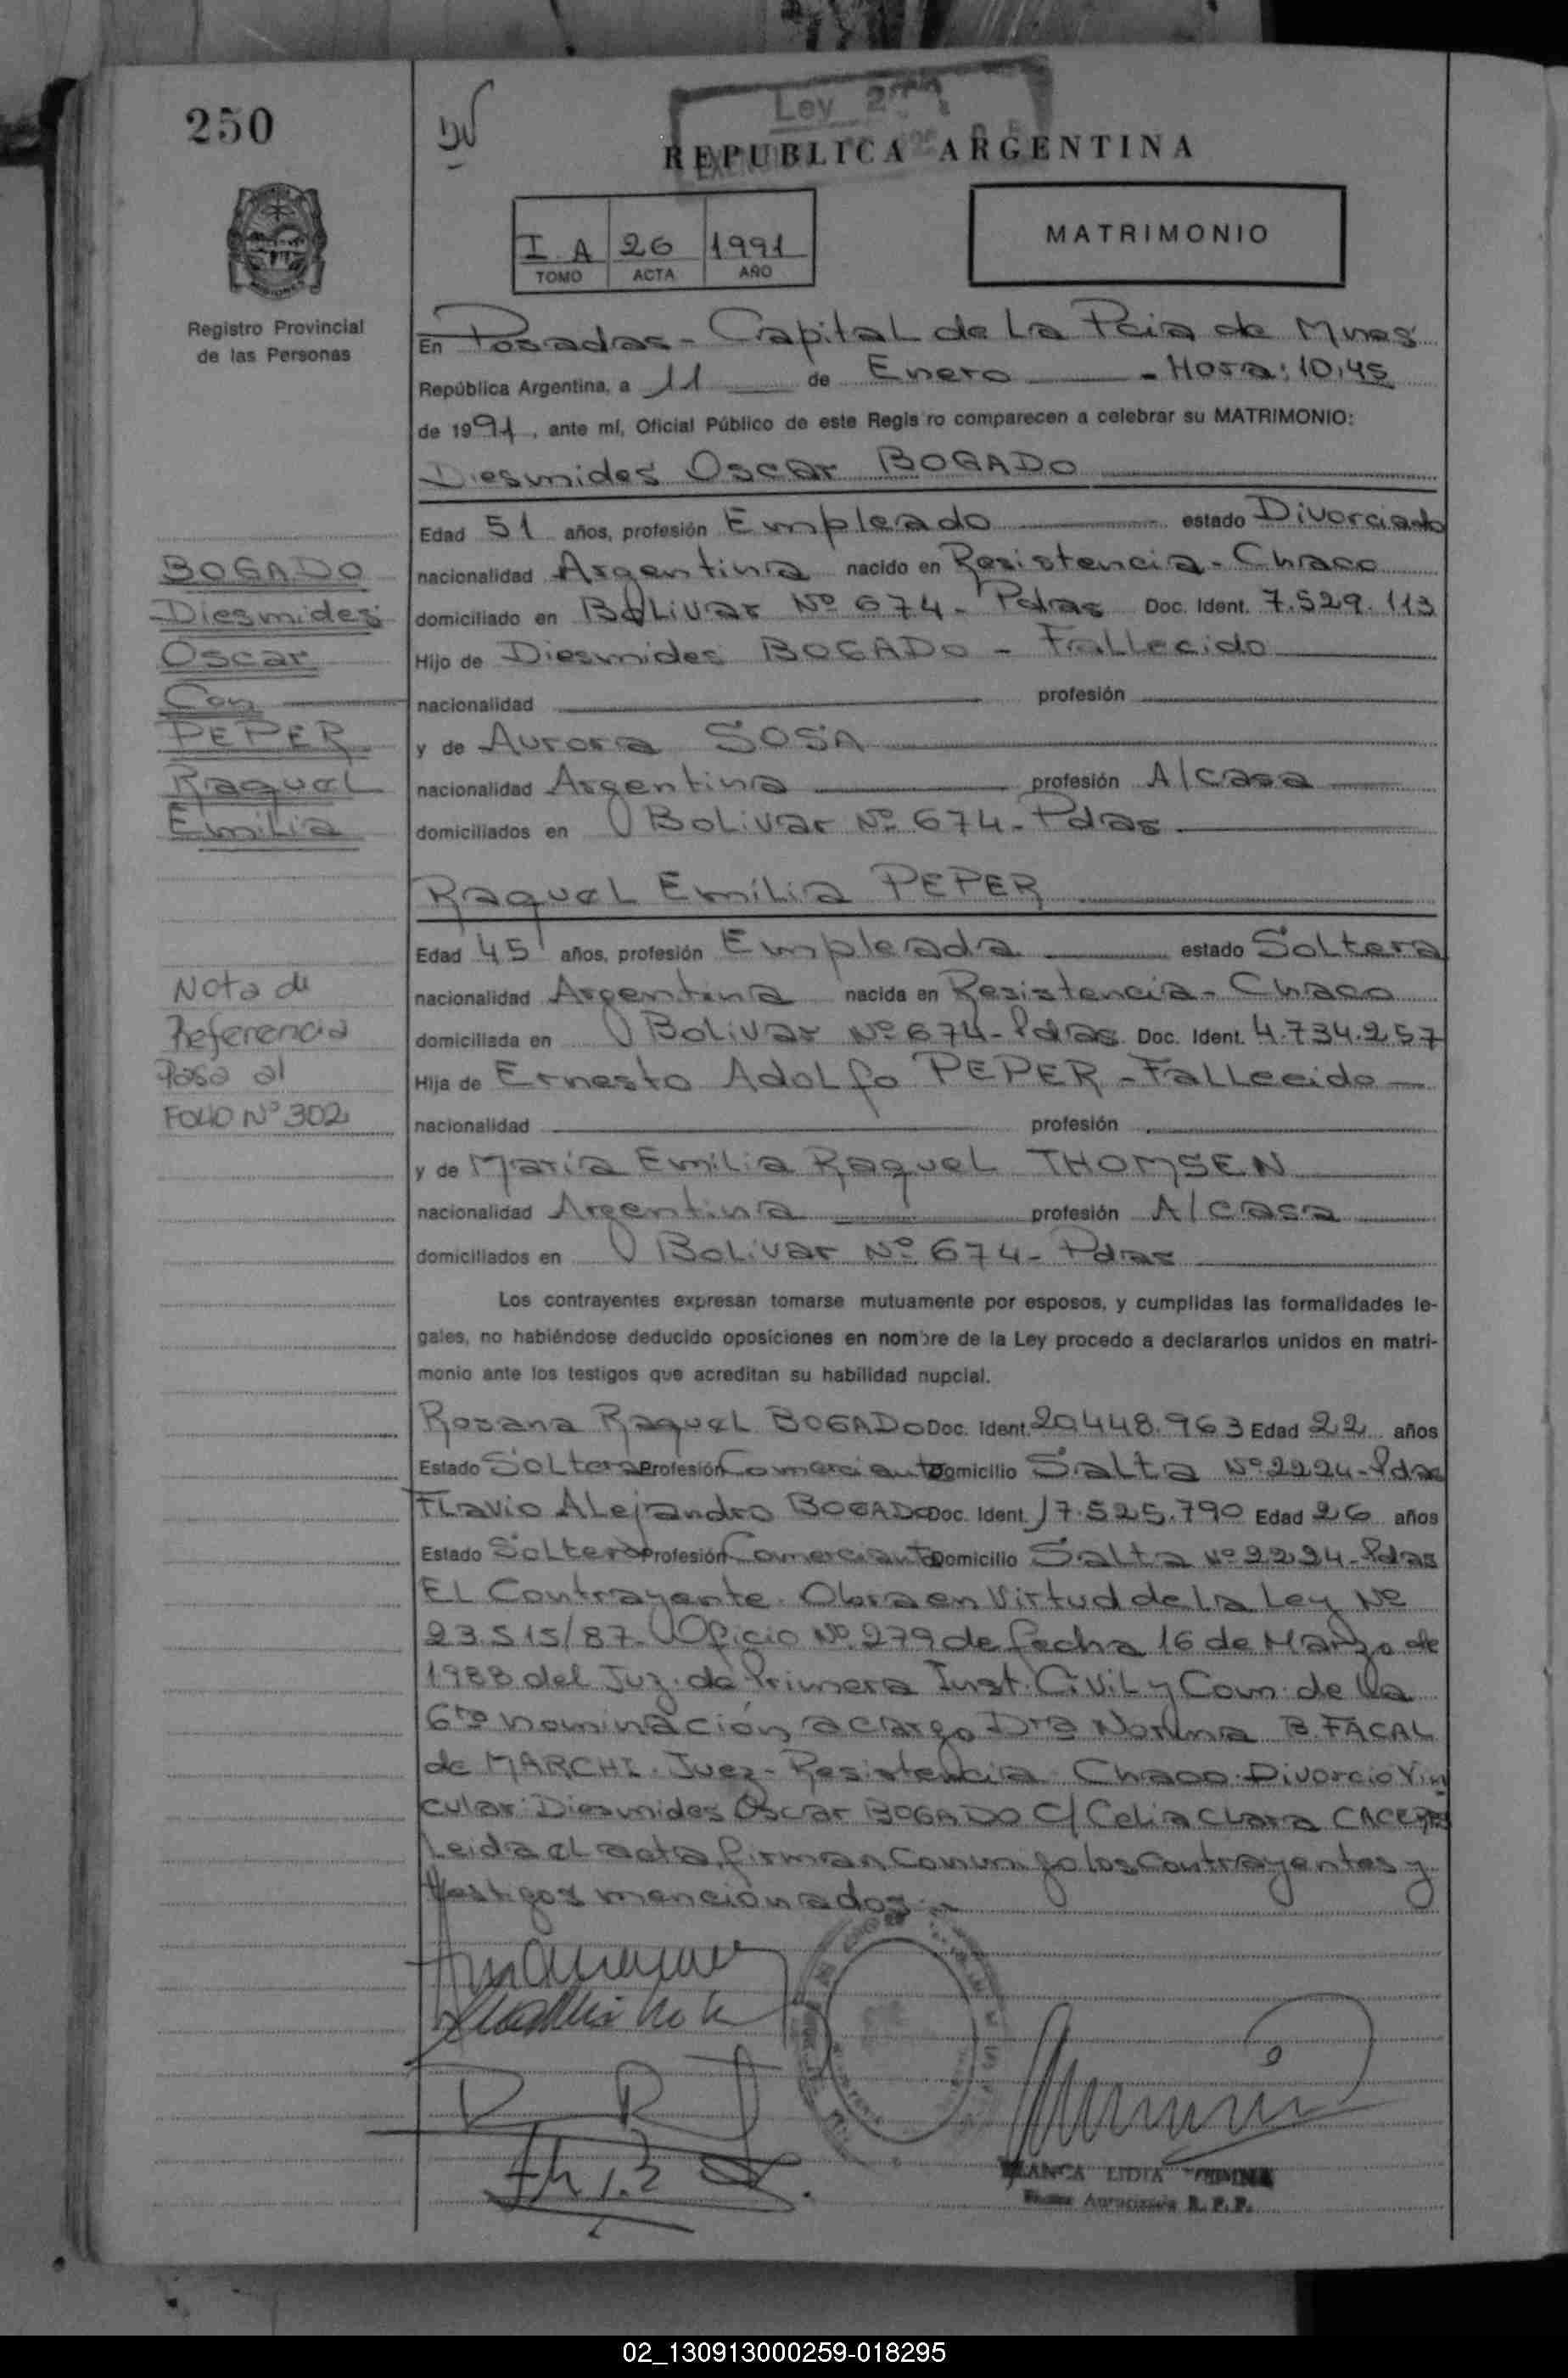 250
Ley 2
REPUBLICA ARGENTINA
I A 26 1991
TOMO ACTA AÑO
MATRIMONIO
Registro Provincial
de las Personas
En Posadas - Capital de La Pcia de Mnes
República Argentina, a 11 de Enero - Hora: 10,45
de 1991, ante mí, Oficial Público de este Regis ro comparecen a celebrar su MATRIMONIO:
Diesmides Oscar BOGADO
Edad 51 años, profesión Empleado estado Divorciado
nacionalidad Argentina nacido en Resistencia - Chaco
domiciliado en Bolivar Nº 674 - Pdas Doc. Ident. 7.529.113
Hijo de Diesmides BOGADO - Fallecido
nacionalidad profesión
y de Aurora SOSA
nacionalidad Argentina profesión A/casa
domiciliados en Bolivar Nº 674 - Pdas
BOGADO
Diesmides
Oscar
Con
PEPER
Raquel
Emilia
Raquel Emilia PEPER
Edad 45 años, profesión Empleada estado Soltera
nacionalidad Argentina nacida en Resistencia - Chaco
domiciliada en Bolivar Nº 674 - Pdas. Doc. Ident. 4.734.257
Hija de Ernesto Adolfo PEPER - Fallecido
nacionalidad profesión
y de María Emilia Raquel THOMSEN
nacionalidad Argentina profesión A/casa
domiciliados en Bolivar Nº 674 - Pdas
Nota de
Referencia
Pasa al
FOLIO Nº 302
Los contrayentes expresan tomarse mutuamente por esposos, y cumplidas las formalidades le-
gales, no habiéndose deducido oposiciones en nombre de la Ley procedo a declararlos unidos en matri-
monio ante los testigos que acreditan su habilidad nupcial.
Rosana Raquel BOGADO Doc. Ident. 20.448.963 Edad 22 años
Estado Soltera Profesión Comerciante Domicilio Salta Nº 2224 - Pdas
Flavio Alejandro BOGADO Doc. Ident. 17.525.790 Edad 26 años
Estado Soltero Profesión Comerciante Domicilio Salta Nº 2224 - Pdas
El Contrayente. Obra en Virtud de la Ley Nº
23.515/87. Oficio Nº 279 de fecha 16 de Marzo de
1988 del Juz. de Primera Inst. Civil y Com. de la
6ta nominación, a cargo Dra Norma B. FACAL
de MARCHI. Juez - Resistencia Chaco. Divorcio Vin
cular: Diesmides Oscar BOGADO C/ Celia Clara CACERES
Leida el acta, firman conmigo los contrayentes y
testigos mencionados.-
BLANCA LIDIA
R. P. P.
02_130913000259-018295